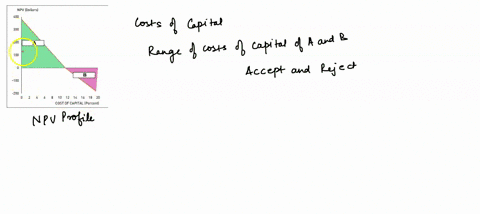 NPV (Dollars)
400
300
200
100
0
-100
-200
B
0 2 4 6 8 10 12 14 16 18 20
COST OF CAPITAL (Percent)
NPV Profile
Costs of Capital
Range of costs of capital of A and B
Accept and Reject